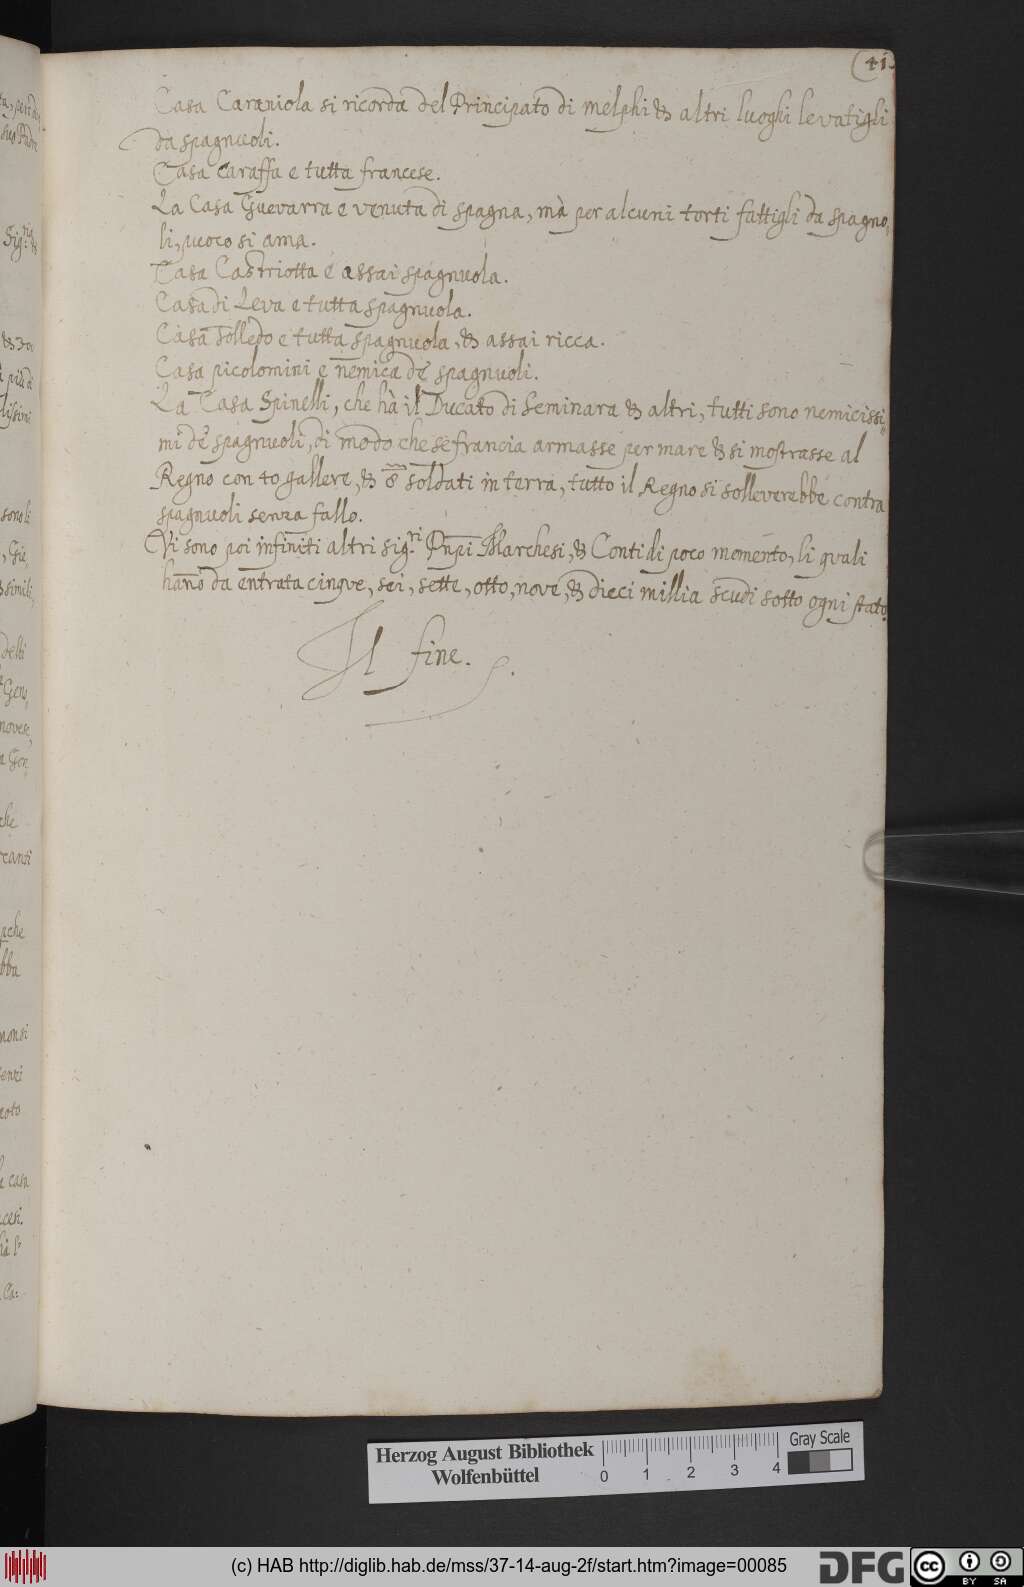 41.
Casa Caraviola si ricorda del Principato di melphi & altri luoghi levatigli
da spagnuoli.
Casa Caraffa e tutta francese.
La Casa Guevarra e venuta di spagna, mà per alcuni torti fattigli da spagno,
li, puoco si ama.
Casa Castriotta é assai spagnuola.
Casa di Leva e tutta spagnuola.
Casa Tolledo e tutta spagnuola, & assai ricca.
Casa picolomini e nemica de spagnuoli.
La Casa Spinelli, che hà il Ducato di Seminara & altri, tutti sono nemicissi,
mi de spagnuoli, di modo che se francia armasse per mare & si mostrasse al
Regno con 40 gallere, & 8 soldati in terra, tutto il Regno si solleverebbe contra
spagnuoli senza fallo.
Vi sono poi infiniti altri sig.ri Pnpi Marchesi, & Conti di poco momento, li quali
hano da entrata cinque, sei, sette, otto, nove, & dieci millia scudi sotto ogni stato.
Il fine.
Herzog August Bibliothek
Wolfenbüttel
0 1 2 3 4
Gray Scale
(c) HAB http://diglib.hab.de/mss/37-14-aug-2f/start.htm?image=00085
DFG
cc BY SA